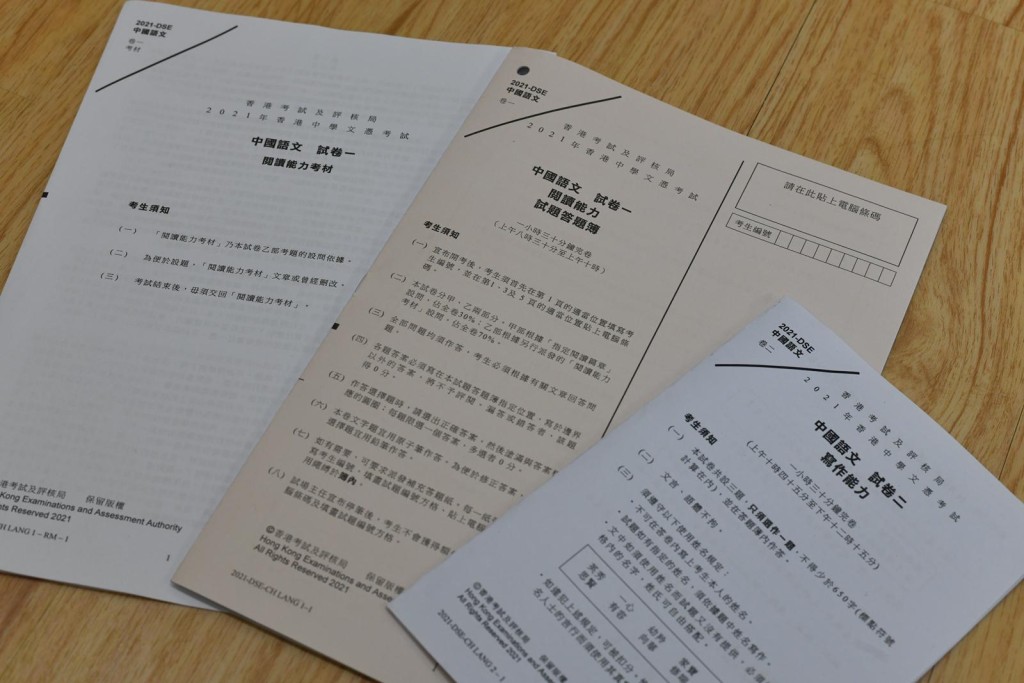 2021-DSE
中國語文
卷一
考材
香港考試及評核局
2021年香港中學文憑考試
中國語文 試卷一
閱讀能力考材
考生須知
(一) 「閱讀能力考材」乃本試卷乙部考題的設問依據。
(二) 為便於設題,「閱讀能力考材」文章或曾經刪改。
(三) 考試結束後,毋須交回「閱讀能力考材」。
香港考試及評核局 保留版權
Kong Examinations and Assessment Authority
hts Reserved 2021
CH LANG 1–RM–1
1
2021-DSE
中國語文
卷一
香港考試及評核局
2021年香港中學文憑考試
中國語文 試卷一
閱讀能力
試題答題簿
一小時三十分鐘完卷
(上午八時三十分至上午十時)
請在此貼上電腦條碼
考生編號
考生須知
(一) 宣布開考後,考生須首先在第1頁的適當位置填寫考
生編號,並在第1、3及5頁的適當位置貼上電腦條
碼。
(二) 本試卷分甲、乙兩部分,甲部根據「指定閱讀篇章」
設問,佔全卷30%;乙部根據另行派發的「閱讀能力
考材」設問,佔全卷70%。
(三) 全部問題均須作答。考生必須根據有關文章回答問
題。
(四) 各題答案必須寫在本試題答題簿指定位置。寫於邊界
以外的答案,將不予評閱。漏答或錯答者,該題
得0分。
(五) 作答選擇題時,請選出正確答案,然後塗滿與答案對
應的圓圈;每題限選一個答案,多選者0分。
(六) 本卷文字題宜用原子筆作答。為便於修正答案,
選擇題宜用鉛筆作答。
(七) 如有需要,可要求派發補充答題紙。每一紙
寫考生編號、填畫試題編號方格、貼上電腦
用繩縛於簿內。
(八) 試場主任宣布停筆後,考生不會獲得額
腦條碼及填畫試題編號方格。
©香港考試及評核局 保留版權
Hong Kong Examinations and Asses
All Rights Reserved 2021
2021-DSE-CH LANG 1–1
2021-DSE
中國語文
卷二
香港考試及評核局
2021年香港中學文憑考試
中國語文 試卷二
寫作能力
一小時三十分鐘完卷
(上午十時四十五分至下午十二時十五分)
考生須知
(一) 本試卷共設三題,只須選作一題,不得少於650字(標點符號
計算在內),並在答題簿內作答。
(二) 文言、語體不拘。
(三) 須遵守以下使用姓名規定:
· 不可在答卷內寫上考生本人的姓名。
· 試題如有指定的姓名,須依據題中姓名寫作。
· 文中如須使用姓名而試題又沒有提供,必須
格內的名字,姓氏可自由搭配。
英秀 一心 幼矜
思賢 有容 向華
· 如違犯上述規定,可被扣分。
名人士的言行而須使用其真
©香港考試及評核局 保留版
Hong Kong Examination
All Rights Reserved 2021
2021-DSE-CH LANG 2–1